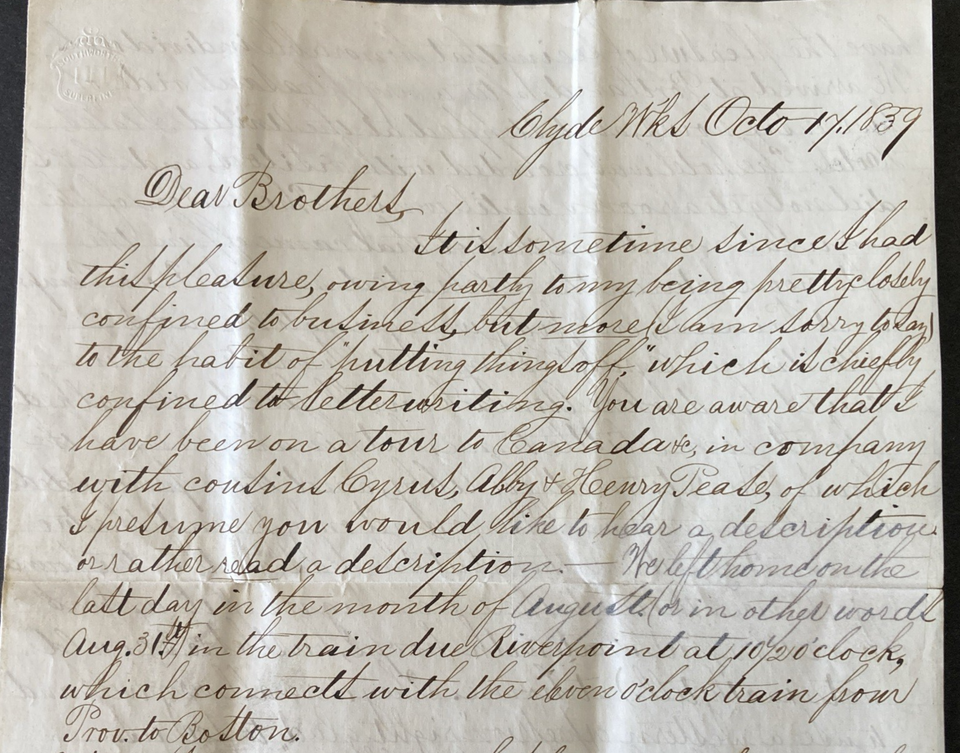 Clyde Wks Octo 17, 1859
Dear Brothers,
It is sometime since I had
this pleasure, owing partly to my being pretty closely
confined to business, but more (I am sorry to say)
to the habit of "putting things off," which is chiefly
confined to letter writing. You are aware that I
have been on a tour to Canada &c, in company
with cousins Cyrus, Abby & Henry Pease, of which
I presume you would like to hear a description
or rather read a description. — We left home on the
last day in the month of August. (or in other words
Aug. 31st) in the train due Riverpoint at 10/20 o'clock,
which connects with the eleven o'clock train from
Prov. to Boston.